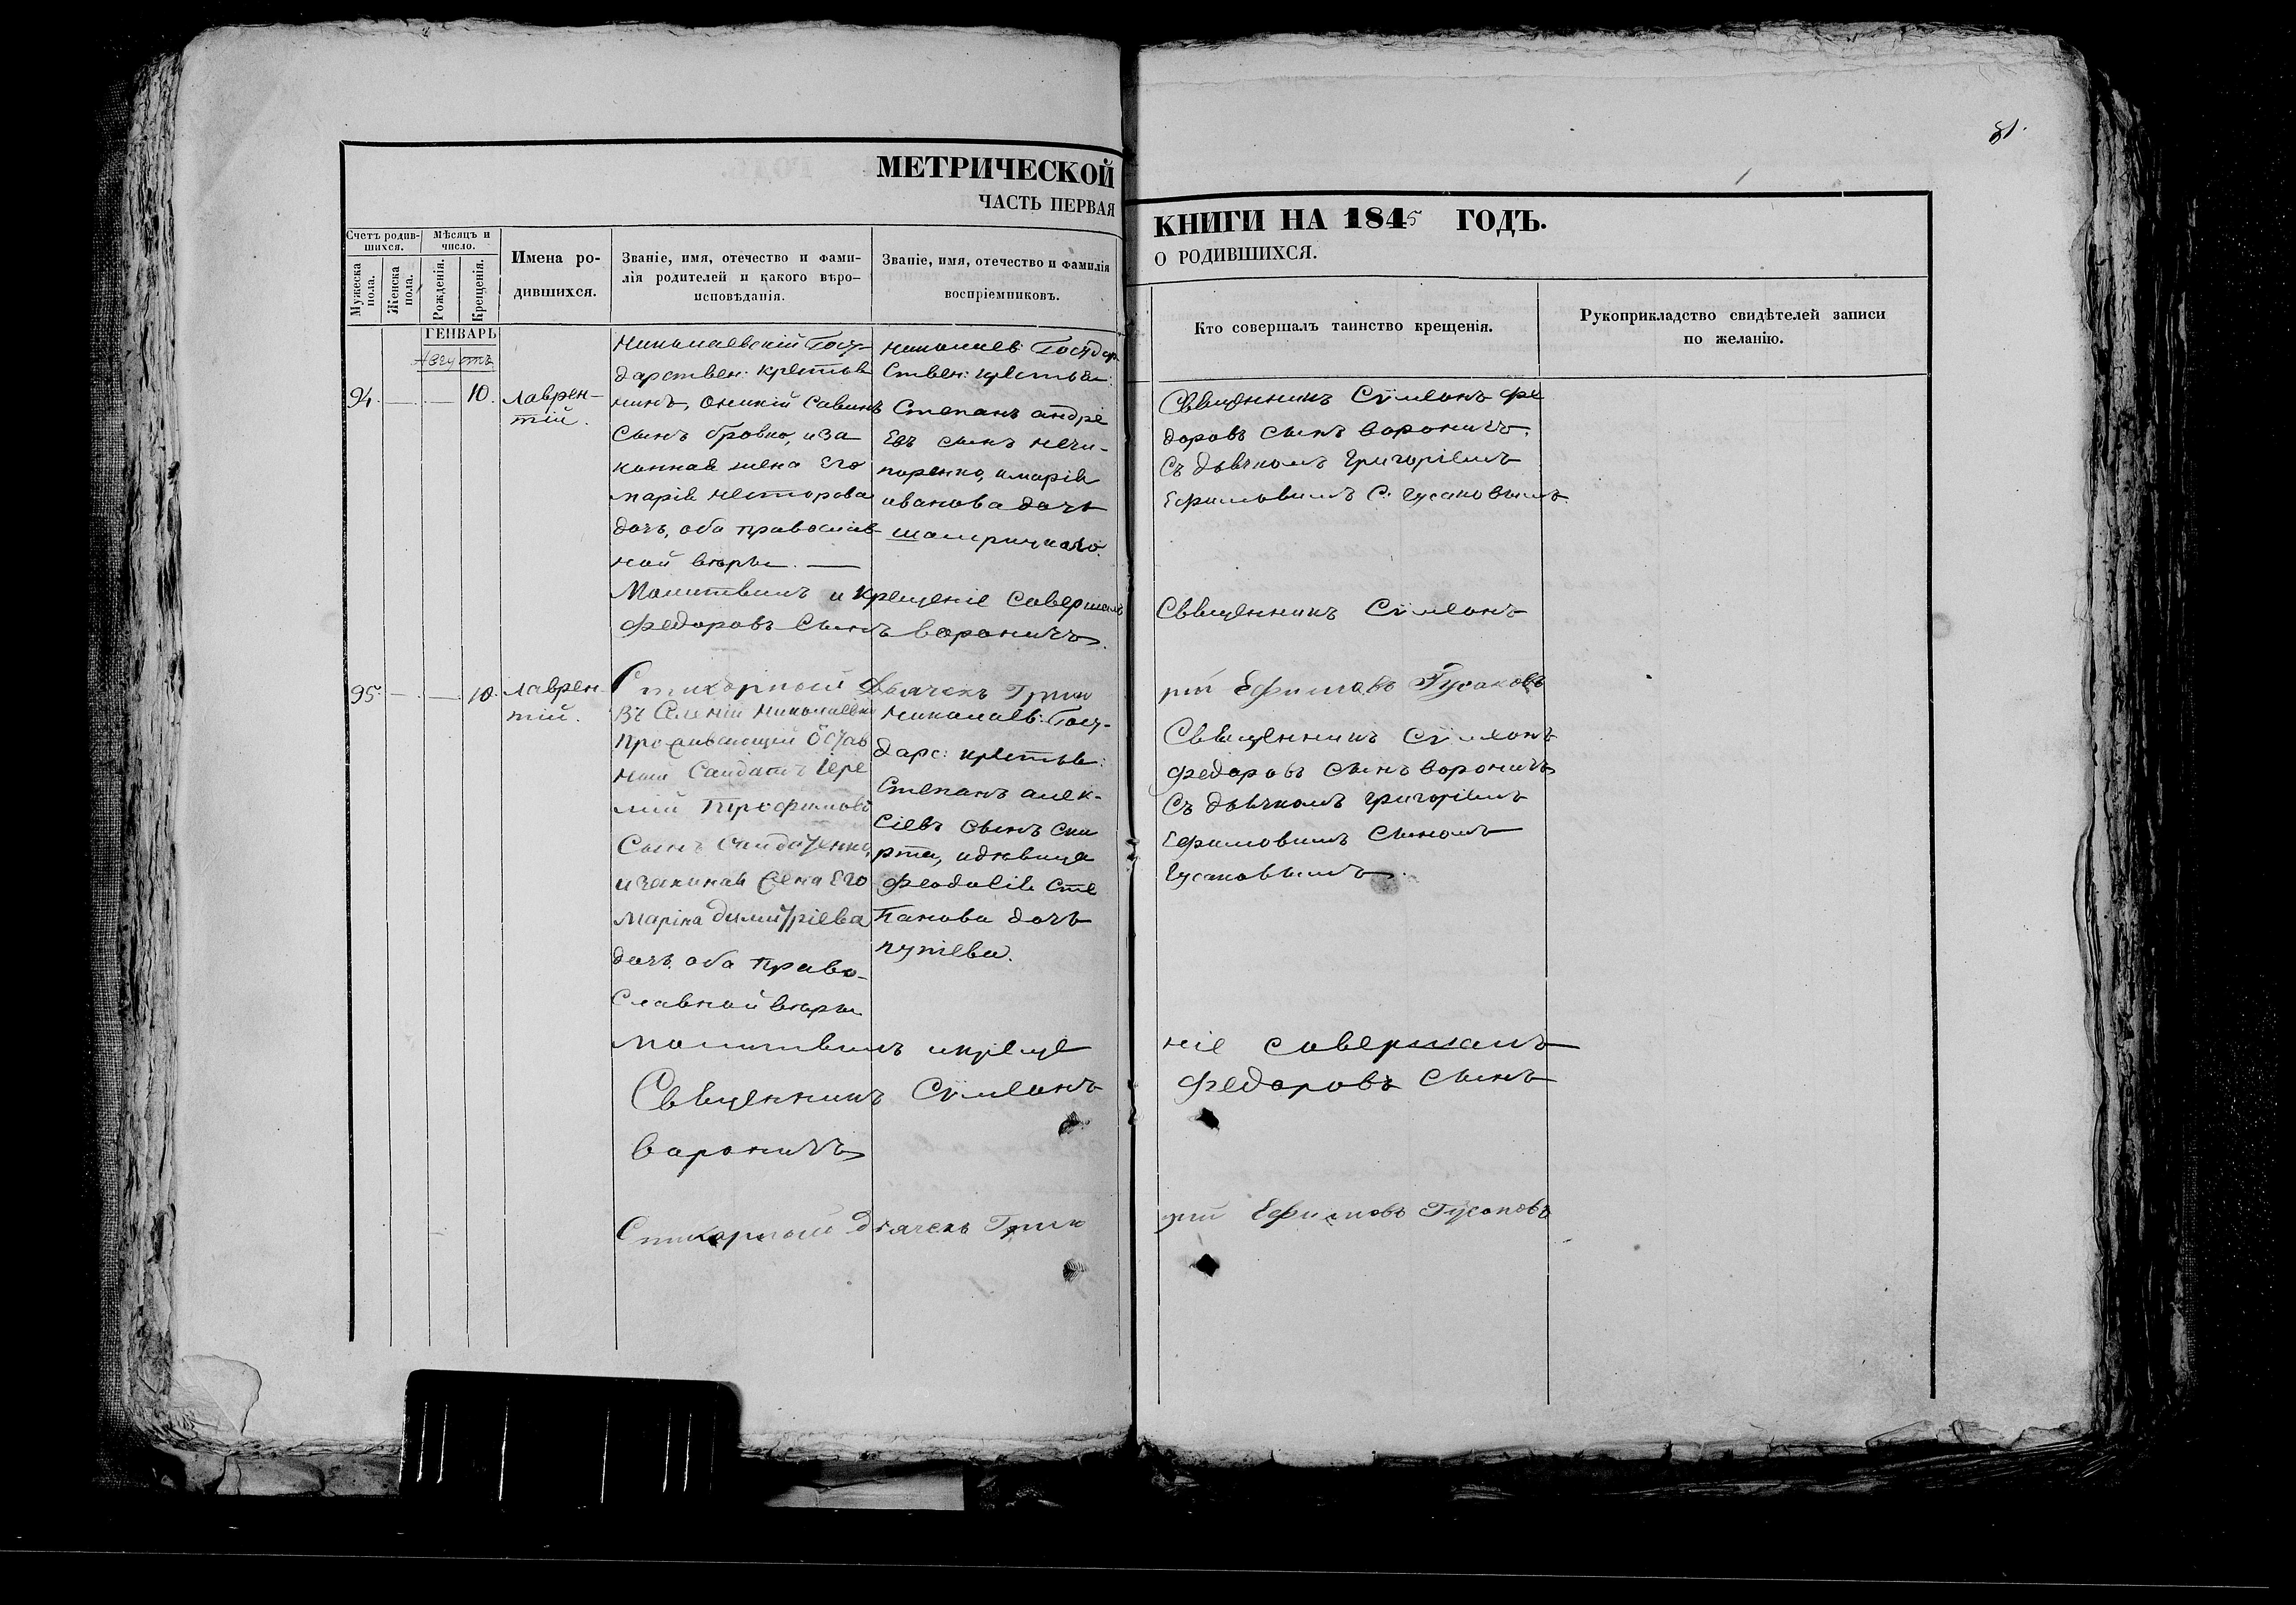 81.
МЕТРИЧЕСКОЙ
ЧАСТЬ ПЕРВАЯ
КНИГИ НА 1845 ГОДЪ.
О РОДИВШИХСЯ.
Счетъ родив-
шихся.
Мужеска пола.
Женска пола.
Мѣсяцъ и
число.
Рожденія.
Крещенія.
Имена ро-
дившихся.
Званіе, имя, отечество и фами-
лія родителей и какого вѣро-
исповѣданія.
Званіе, имя, отечество и фамилія
воспріемниковъ.
Кто совершалъ таинство крещенія.
Рукоприкладство свидѣтелей записи
по желанію.
ГЕНВАРЬ
Августъ
94. — — 10.
Лаврен-
тій.
Николаевскій Госу-
дарствен: крестья
нинъ, Оникій Савинъ
сынъ бровко, иза
конная жена Его
марія несторова
дочь, оба православ
ной вѣры. —
николаев: Государ
ствен: крестьян:
Степанъ андрі
Евъ сынъ нечи-
поренко, имарія
иванова дочь
Священникъ Сѵмеонъ Фе
доровъ сынъ вороничъ.
Съ дьячкомъ григоріемъ
Ефимовымъ С. гусаковымъ.
Молитвилъ и крещеніе Совершалъ
Священникъ Сѵмеонъ
Федоровъ Сынъ вороничъ.
Стихарный Дьячекъ Григо
рій Ефимовъ Гусаковъ
95. — — 10.
Лаврен
тій.
Въ Селеніи николаевки
Проживающій
Сынъ
и законная жена Его
Марина димитріева
дочь, оба Право-
Славной вѣры
Николаев: Госу-
дарс: крестья:
Степанъ алек-
сіевъ сынъ ски
рта, идѣвица
Феодосія Сте
панова дочь
Священникъ Сѵмеонъ
Федоровъ сынъ вороничъ
Съ дьячкомъ григоріемъ
Ефимовымъ Сыномъ
гусаковымъ.
молитвилъ икреще
ніе совершалъ
Священникъ Сѵмеонъ
Федоровъ Сынъ
вороничъ
Стихарный дьячекъ Григо
рій Ефимовъ Гусаковъ